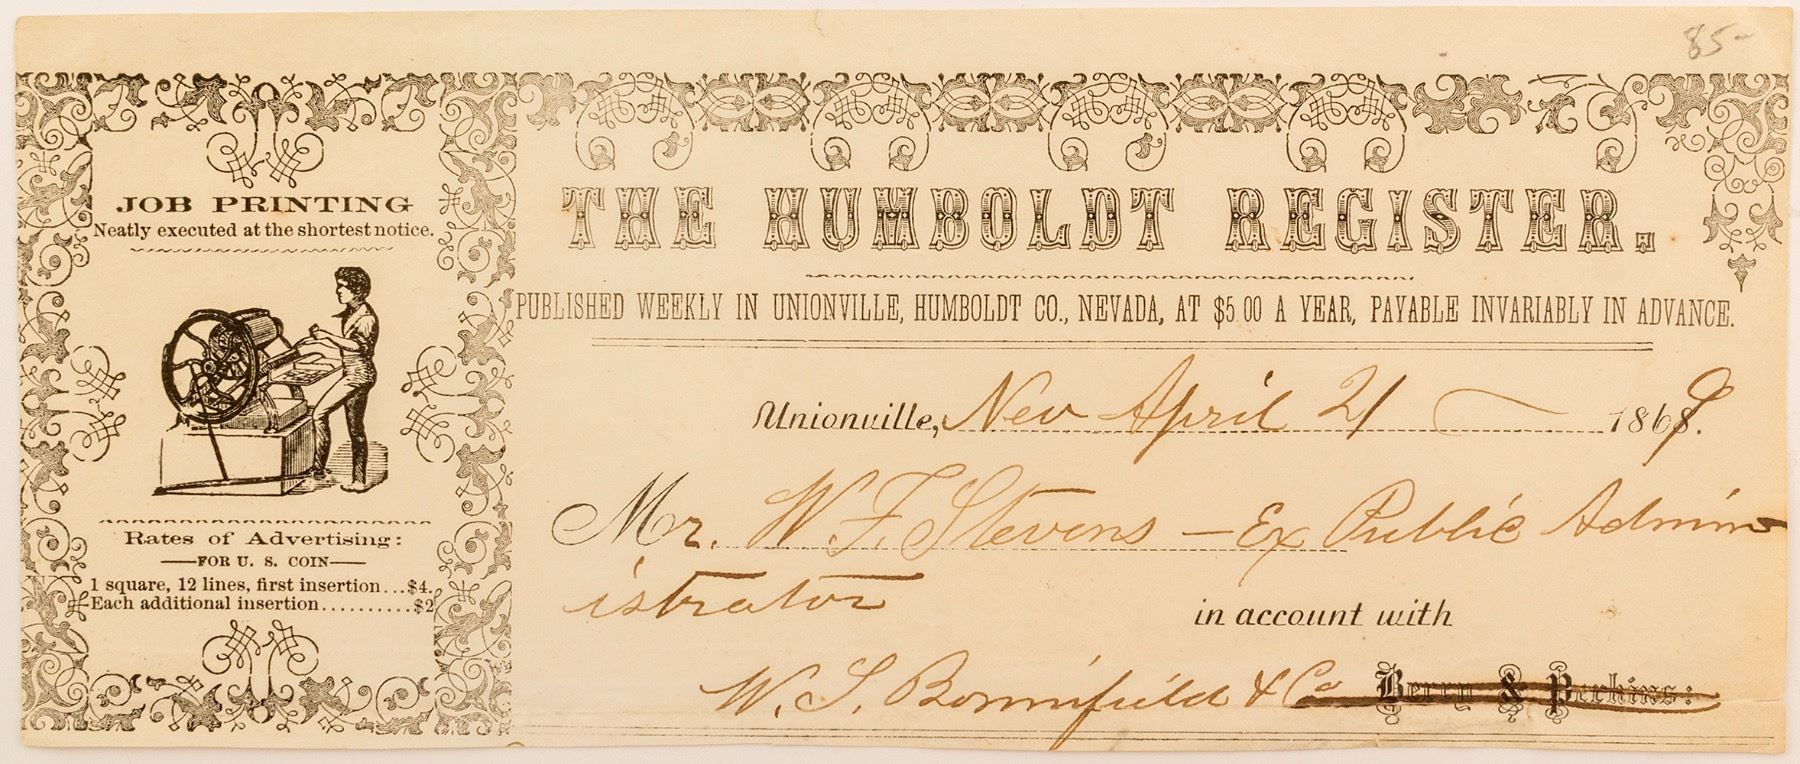 85-
JOB PRINTING
Neatly executed at the shortest notice.
Rates of Advertising:
FOR U. S. COIN
1 square, 12 lines, first insertion...$4.
Each additional insertion..........$2
THE HUMBOLDT REGISTER.
PUBLISHED WEEKLY IN UNIONVILLE, HUMBOLDT CO., NEVADA, AT $5.00 A YEAR, PAYABLE INVARIABLY IN ADVANCE.
Unionville, Nev April 21 1869.
Mr. W. F. Stevens — Ex Public Admin
istrator
in account with
W. S. Bonnifield & Co Berry & Perkins: